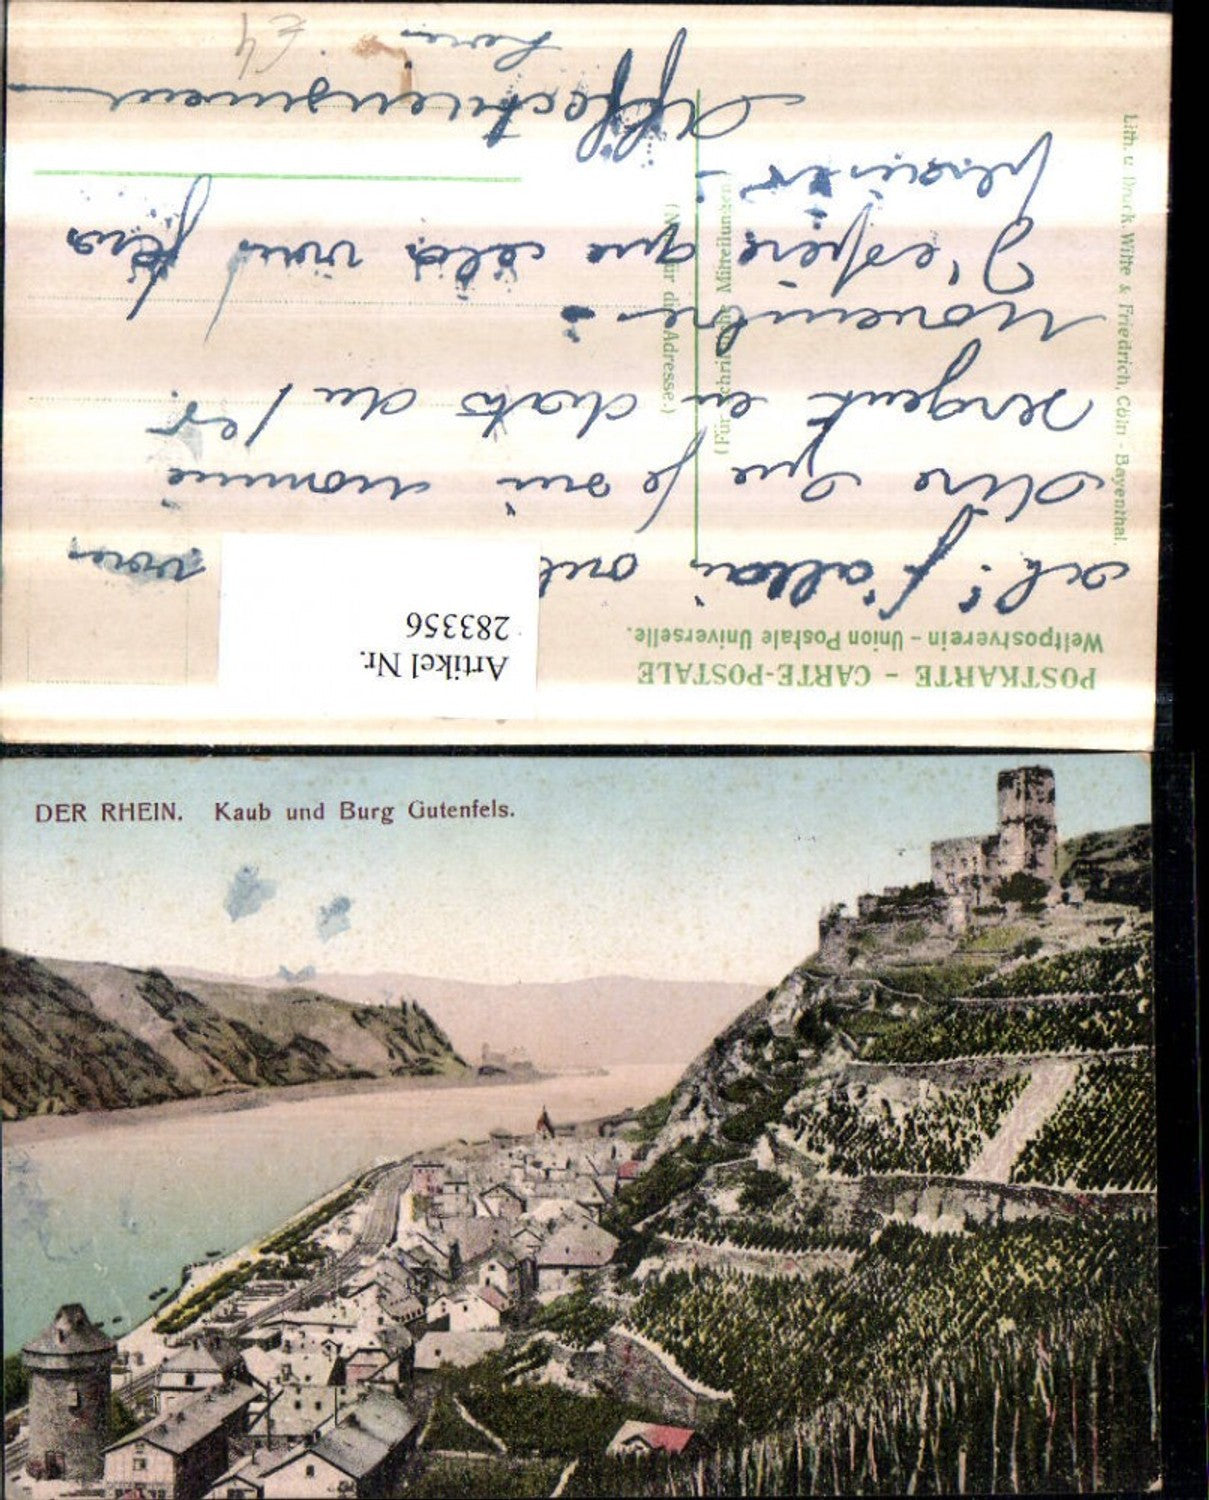 POSTKARTE – CARTE-POSTALE
Weltpostverein – Union Postale Universelle.
Artikel Nr.
283356
ah! j'allai oub vous
dire que je suis nommé
sergent en date du 1er
novembre -
J'espère que cela vous fera
plaisir -
Affectueusement
(Für schriftliche Mitteilungen.)
(Nur für die Adresse.)
Lith. u. Druck. Witte & Friedrich, Cöln - Bayenthal.
£4
DER RHEIN. Kaub und Burg Gutenfels.